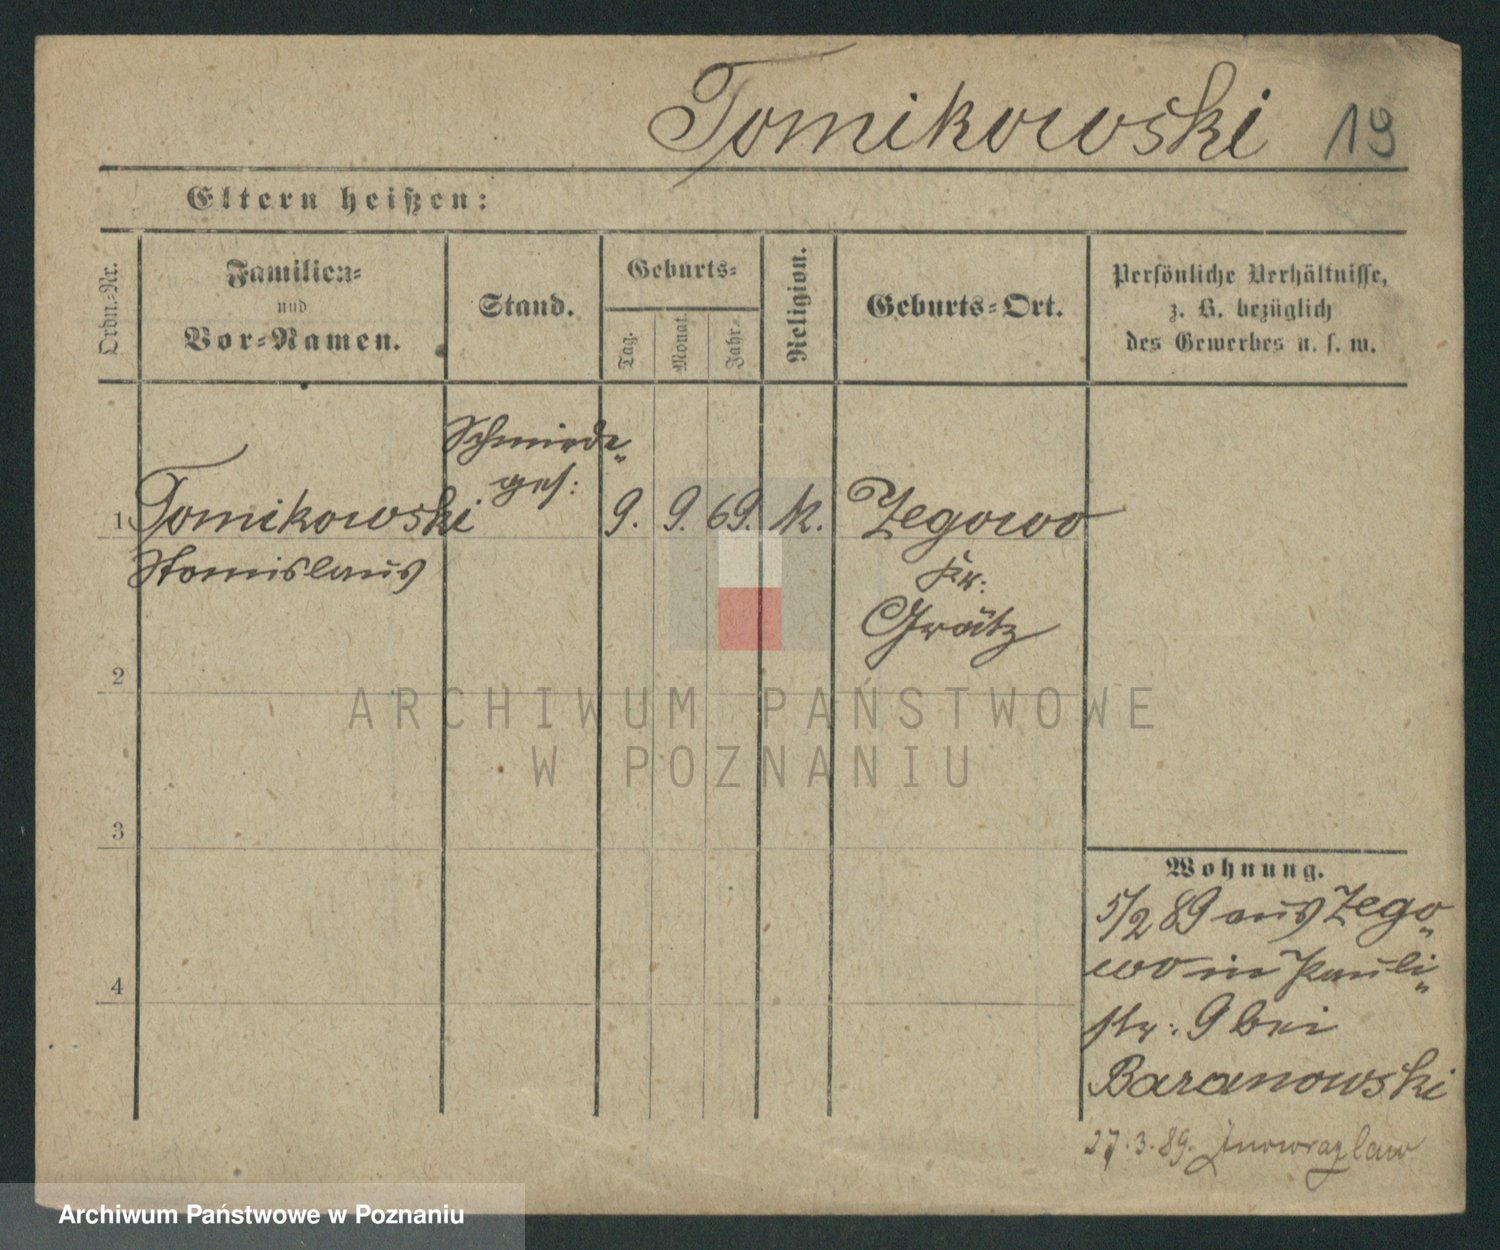 Tomikowski 19
Eltern heißen:
Ordn.-Nr.
Familien-
und
Vor-Namen.
Stand.
Geburts-
Tag.
Monat.
Jahr.
Religion.
Geburts-Ort.
Persönliche Verhältnisse,
z. B. bezüglich
des Gewerbes u. s. w.
Schmiede-
ges:
1 Tomikowski 9. 9. 69. k. Zegowo
Stanislaus
Kr:
Grätz
2
3
4
Wohnung.
5/2 89 aus Zego-
wo in Pauli-
str: 9 bei
Baranowski
27.3.89. Inowrazlaw
ARCHIWUM PAŃSTWOWE
W POZNANIU
Archiwum Państwowe w Poznaniu